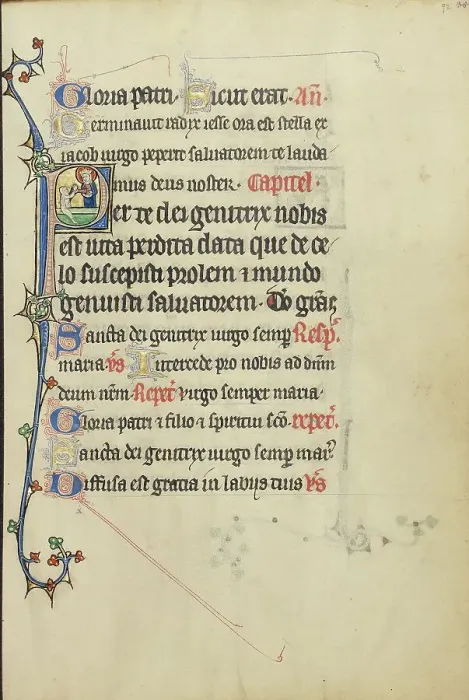 Gloria patri. Sicut erat. An̄.
Germinauit radix iesse orta est stella ex
iacob uirgo peperit saluatorem te lauda
mus deus noster. Capitel.
Per te dei genitrix nobis
est uita perdita data que de ce
lo suscepisti prolem ⁊ mundo
genuisti saluatorem. Do grās
Sancta dei genitrix uirgo semp̄ Resp̄.
maria. v̄s Intercede pro nobis ad dn̄m
deum nr̄m. Repet̄ virgo semper maria.
Gloria patri ⁊ filio ⁊ spiritui sc̄o. repet̄.
Sancta dei genitrix uirgo semp̄ mar̄.
Diffusa est gracia in labijs tuis v̄s